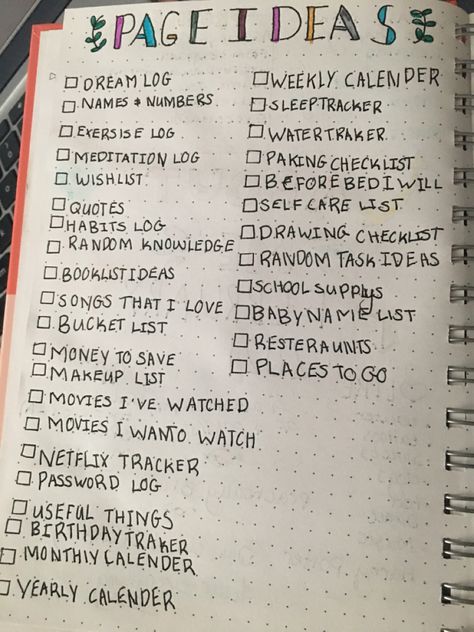 PAGE IDEAS
DREAM LOG
NAMES & NUMBERS
EXERSISE LOG
MEDITATION LOG
WISHLIST
QUOTES
HABITS LOG
RANDOM KNOWLEDGE
BOOKLIST IDEAS
SONGS THAT I LOVE
BUCKET LIST
MONEY TO SAVE
MAKEUP LIST
MOVIES I'VE WATCHED
MOVIES I WANTO WATCH
NETFLIX TRACKER
PASSWORD LOG
USEFUL THINGS
BIRTHDAY TRAKER
MONTHIY CALENDER
YEARLY CALENDER
WEEKLY CALENDER
SLEEP TRACKER
WATER TRAKER
PAKING CHECKLIST
BEFORE BED I WILL
SELF CARE LIST
DRAWING CHECKLIST
RANDOM TASK IDEAS
SCHOOL SUPPLYS
BABY NAME LIST
RESTERAUNTS
PLACES TO GO